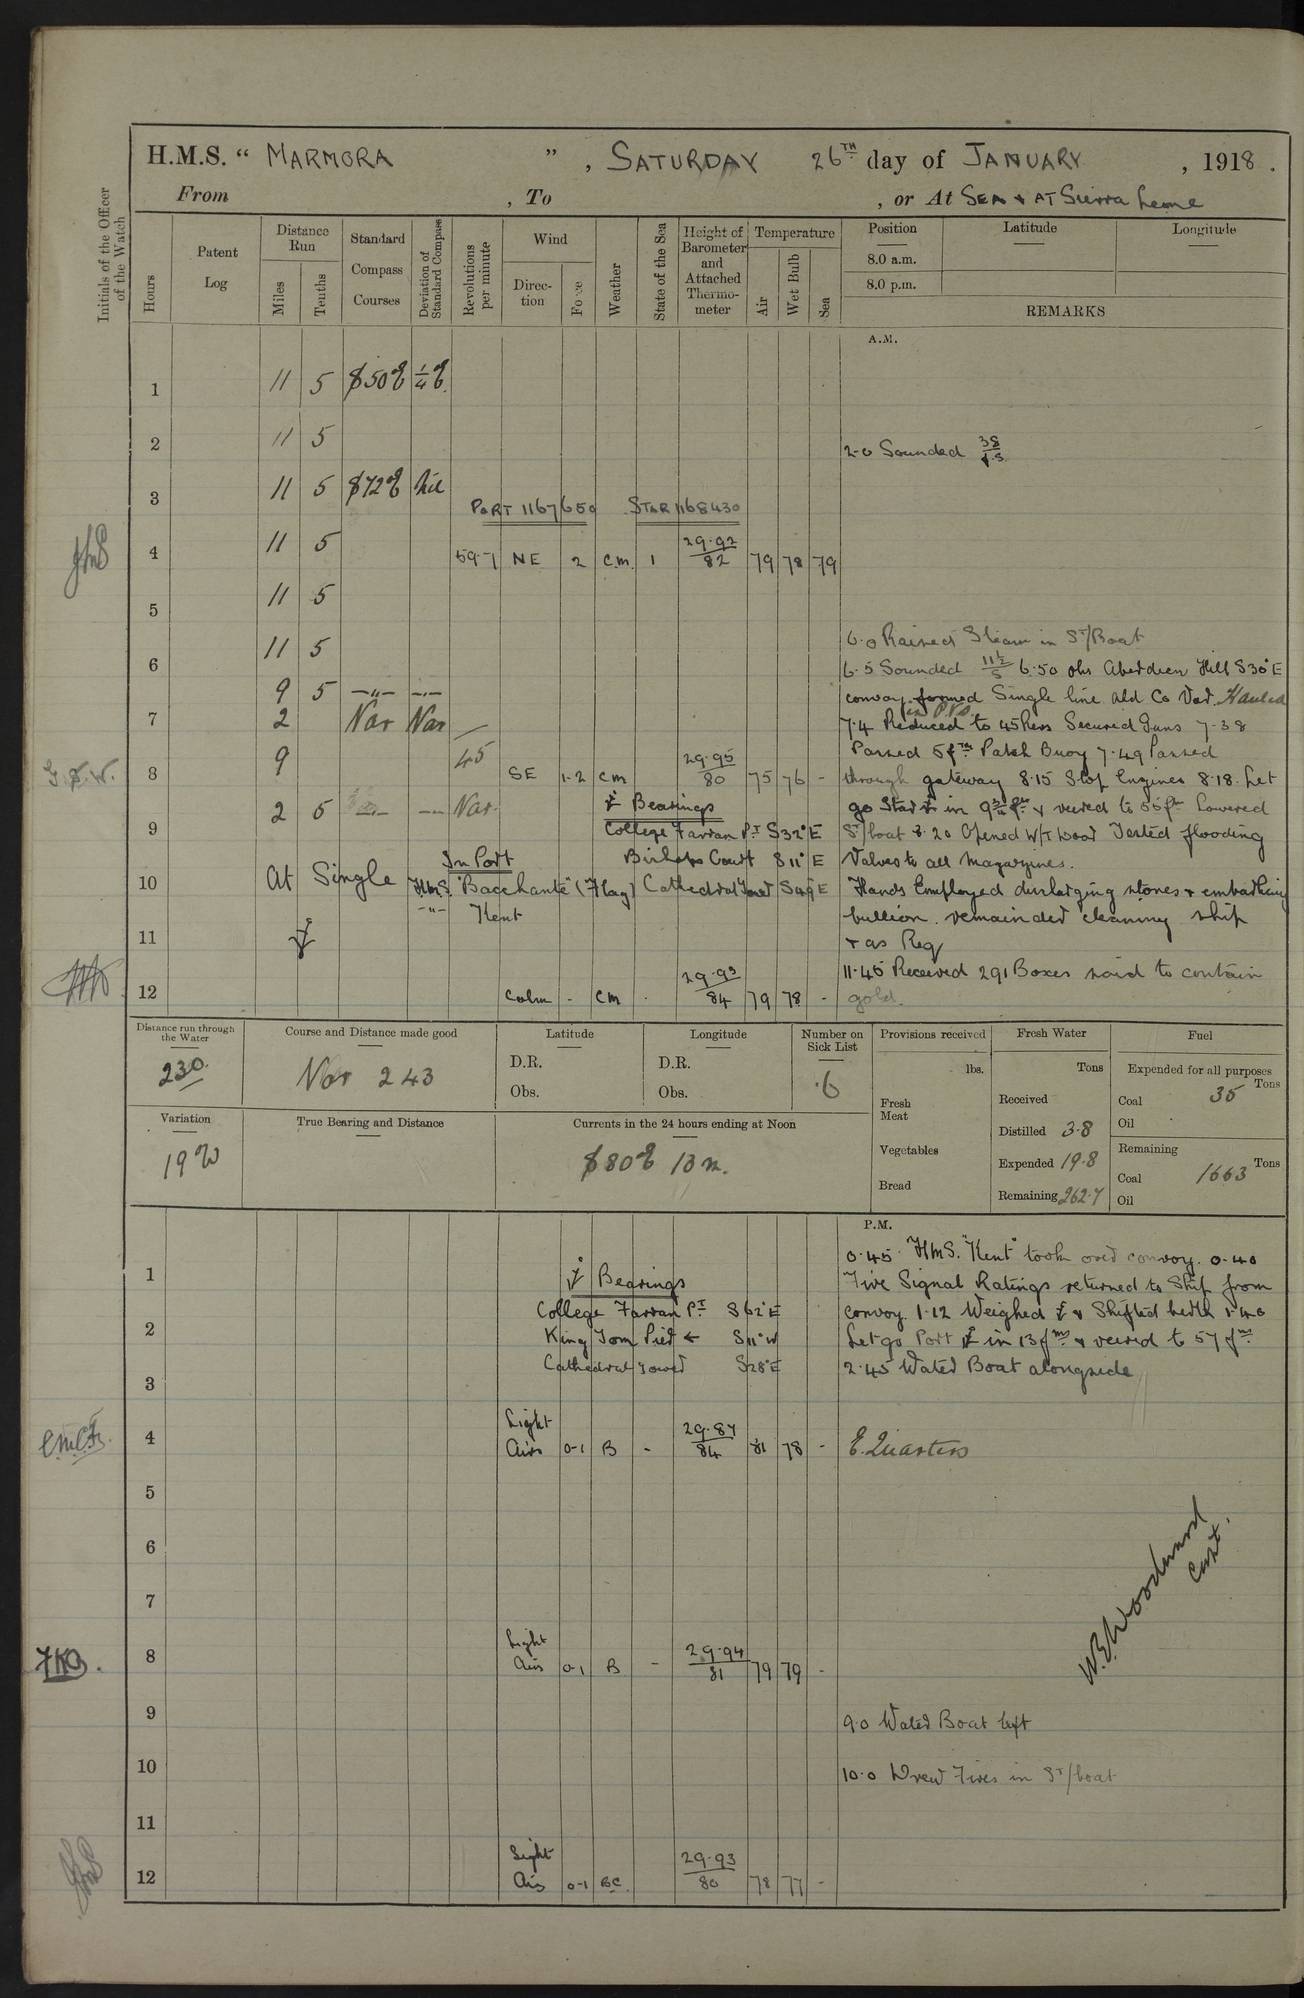 H.M.S. “ MARMORA ” , SATURDAY 26TH day of JANUARY , 1918 .
From , To , or At SEA & AT Sierra Leone
Initials of the Officer of the Watch
Hours
Patent Log
Distance Run
Miles
Tenths
Standard Compass Courses
Deviation of Standard Compass
Revolutions per minute
Wind
Direction
Force
Weather
State of the Sea
Height of Barometer and Attached Thermometer
Temperature
Air
Wet Bulb
Sea
Position
8.0 a.m.
8.0 p.m.
Latitude
Longitude
REMARKS
A.M.
1 11 5 S50E ¼E
2 11 5
2-0 Sounded 38
3 11 5 S72E Nil
PORT 1167650 STAR 1168430
4 11 5 59.7 NE 2 c.m. 1 29.92/82 79 78 79
5 11 5
6.0 Raised Steam in St/Boat
6 11 5
6.5 Sounded 6.50 obs Aberdeen Hill S30°E
convoy formed Single line ahd Co Var. Hauled
in P.V.s
7 9 5 -"- -"-
2 Var Var
7.4 Reduced to 45 Revs Secured Guns 7-38
Passed 5fm Patch Buoy 7.49 Passed
8 9 45 SE 1-2 cm 29.95/80 75 76 -
through gateway 8.15 Stop Engines 8.18 Let
go Star ⚓ in 9¾ fm & veered to 55fm Lowered
9 2 5 -"- Var
⚓ Bearings
College Farran Pt S32°E
St/boat 8.20 Opened W/T Door Tested flooding
Bishops Court S11°E
Valves to all Magazines.
10 At Single
In Port
H.M.S. "Bacchante" (Flag)
Cathedral Tower S49E
Hands Employed discharging stores & embarking
-"- Kent
bullion. remainder cleaning ship
11 ⚓
& as Req
11.45 Received 291 Boxes said to contain
12 Calm - cm . 29.93/84 79 78 -
gold.
Distance run through the Water
230
Course and Distance made good
Var 243
Latitude
D.R.
Obs.
Longitude
D.R.
Obs.
Number on Sick List
6
Provisions received
lbs.
Fresh Meat
Vegetables
Bread
Fresh Water
Tons
Received
Distilled 3.8
Expended 19.8
Remaining 262.7
Fuel
Expended for all purposes
Tons
Coal 35
Oil
Remaining
Tons
Coal 1663
Oil
Variation
19W
True Bearing and Distance
Currents in the 24 hours ending at Noon
S80E 13m.
P.M.
0.45 H.M.S. "Kent" took over convoy. 0.40
1
⚓ Bearings
Five Signal Ratings returned to Ship from
College Farran Pt S62°E
convoy 1.12 Weighed ⚓ & Shifted berth 1.40
2
King Tom Pier ← S11°W
Let go Port ⚓ in 13fms & veered to 57fms
Cathedral Tower S28°E
2.45 Water Boat alongside
3
4 Light Airs 0-1 B - 29.87/84 81 78 -
E. Quarters
5
6
7
W.B. Woodward
Capt.
8 Light Airs 0-1 B - 29.94/81 79 79 -
9
9.0 Water Boat left
10
10.0 Drew Fires in St/boat
11
12 Light Airs 0-1 BC 29.93/80 78 77 -